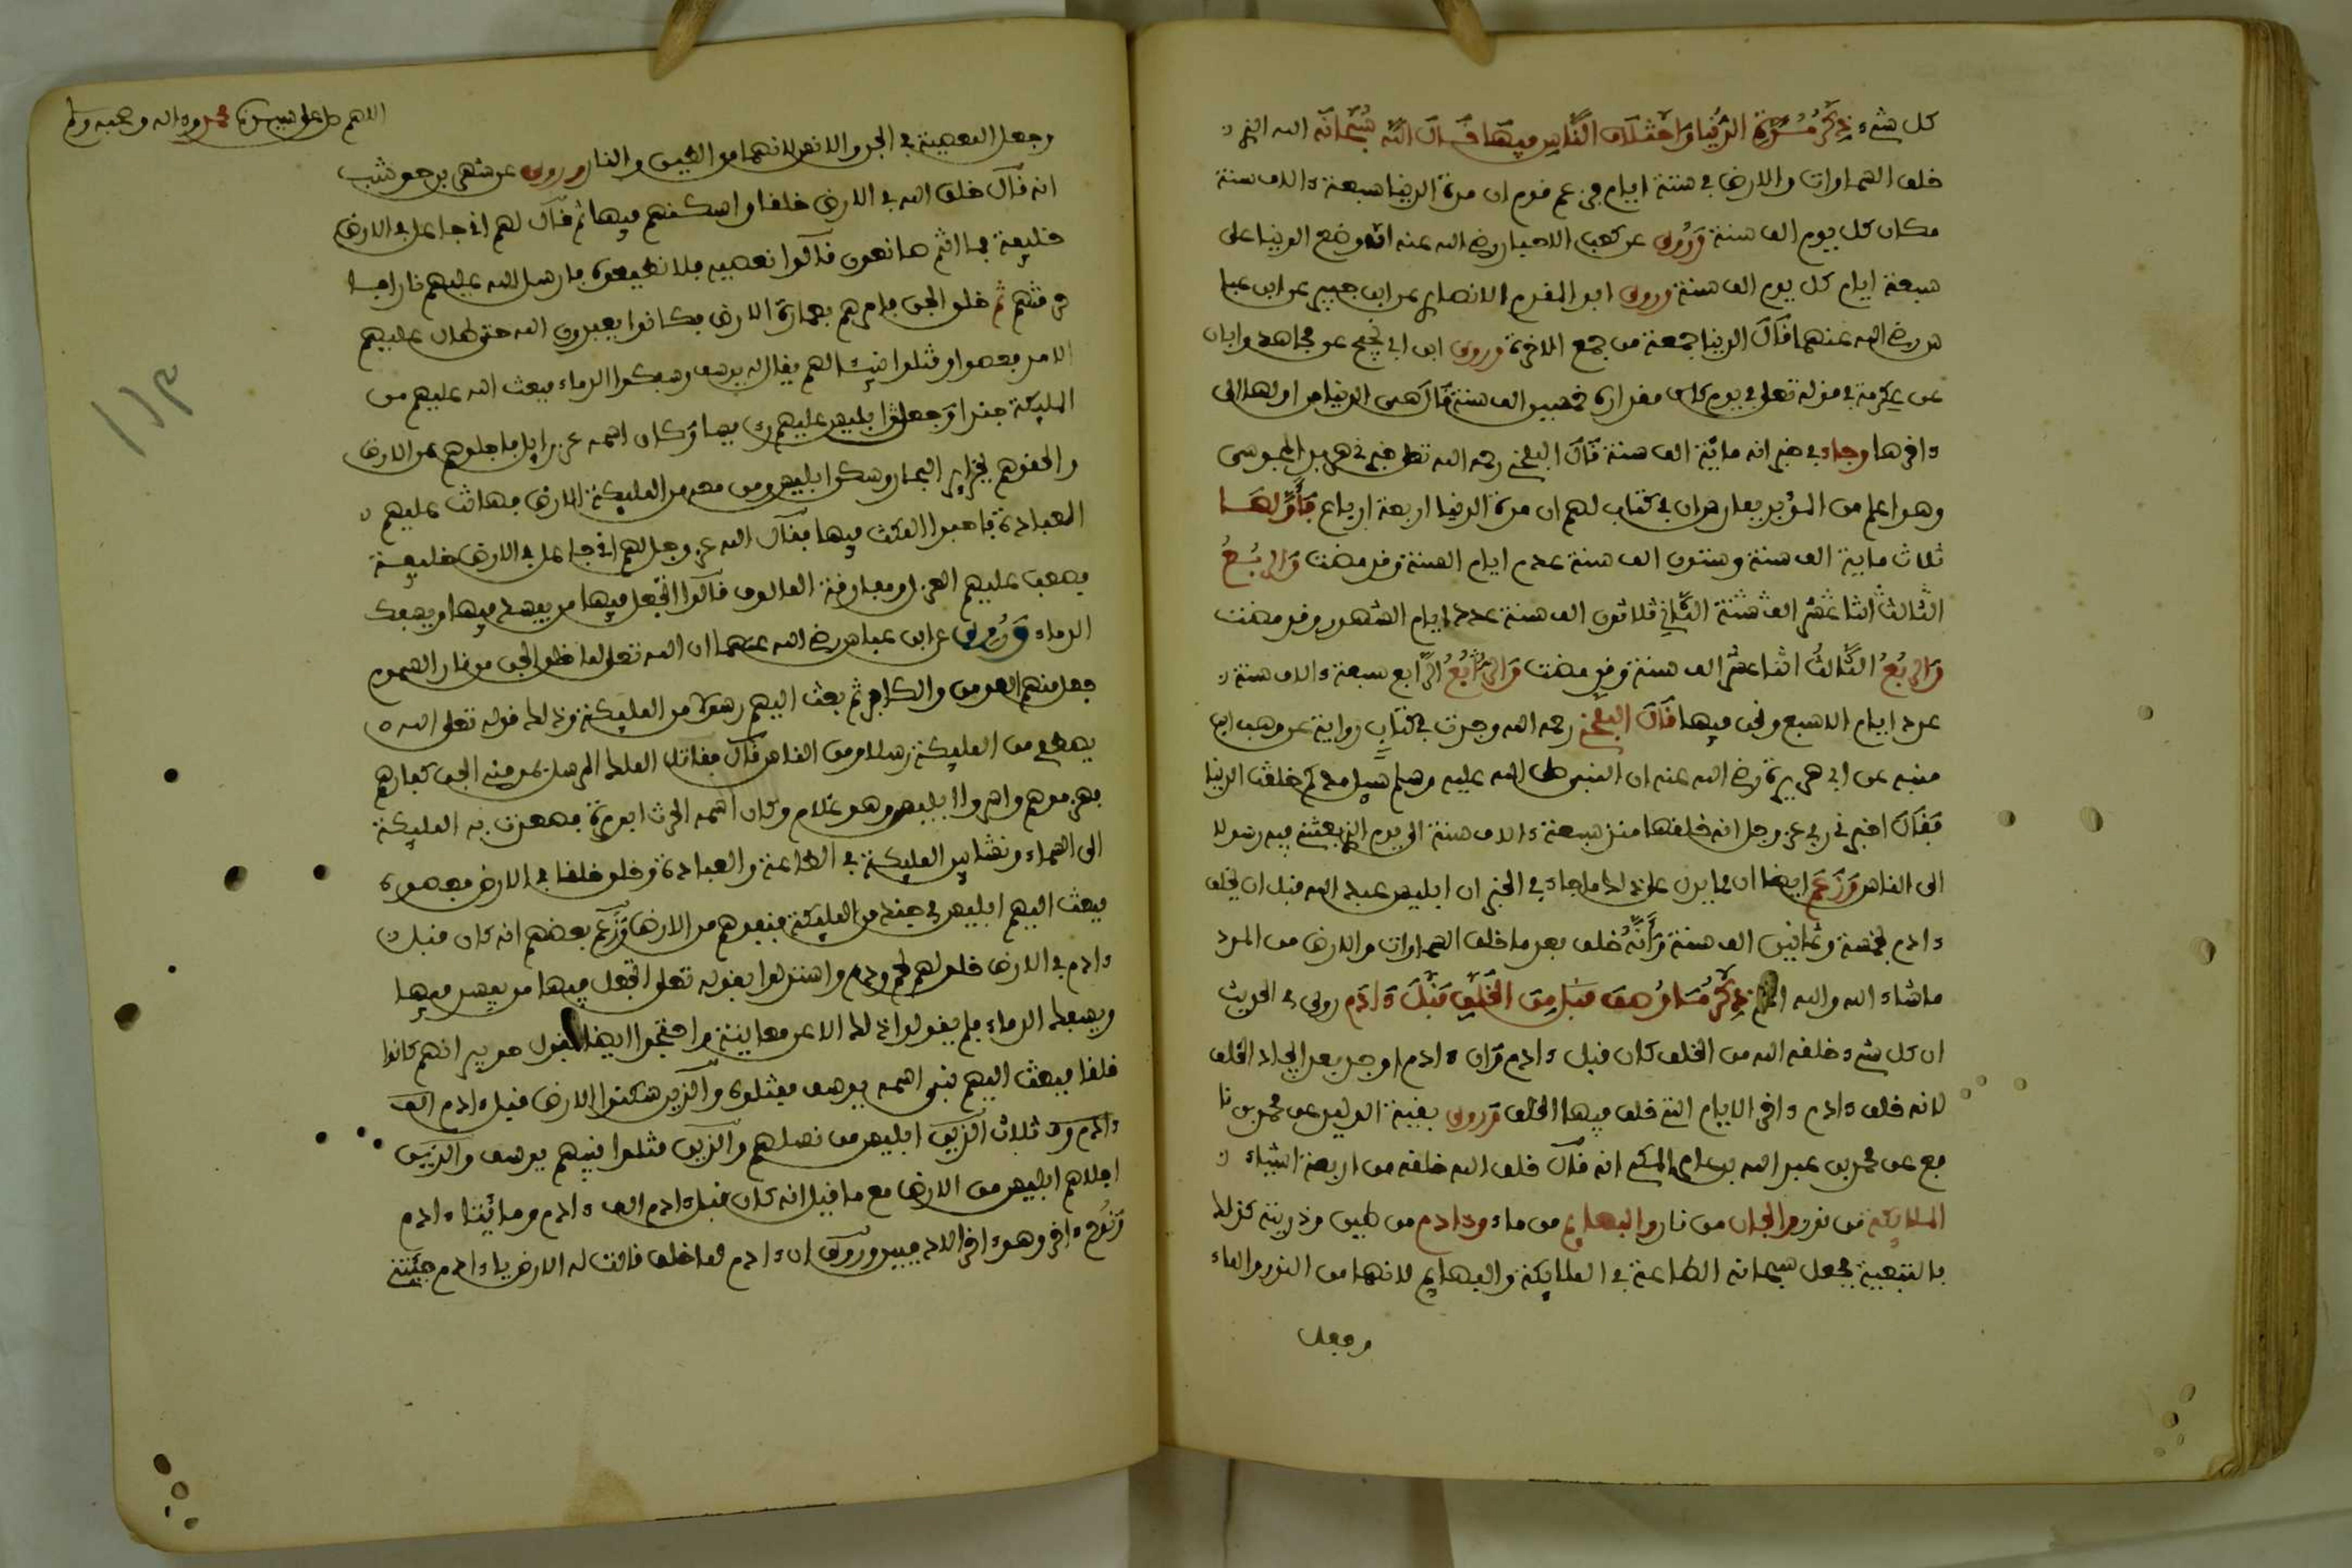 كل شيء ذكر مدة الدنيا واختلاف الناس فيها قال الله سبحانه الله الذي
خلق السماوات والارض في ستة ايام فزعم قوم ان مدة الدنيا سبعة ءالاف سنة
مكان كل يوم الف سنة وروى عن كعب الاحبار رضي الله عنه انه وضع الدنيا على
سبعة ايام كل يوم الف سنة وروى ابو المقدم الانصاري عن ابن جبير عن ابن عبا
س رضي الله عنهما قال الدنيا جمعة من جمع الاخرة وروى ابن ابي نجيح عن مجاهد وابان
عن عكرمة في قوله تعلى في يوم كان مقداره خمسين الف سنة قال هي الدنيا من اولها الى
ءاخرها وجاء في خبر انه ماية الف سنة قال البلخي رحمه الله تعلى خبرني هربد المجوسي
وهو اعلم من الموبد بفارس ان في كتاب لهم ان مدة الدنيا اربعة ارباع فأولها
ثلاث ماية الف سنة وستون الف سنة عدد ايام السنة وقد مضت والربع
الثالث اثنا عشر الف سنة الثاني ثلاثون الف سنة عدد ايام الشهور وقد مضت
والربع الثالث اثنا عشر الف سنة وقد مضت والربع الرابع سبعة ءالاف سنة
عدد ايام الاسبع ونحن فيها قال البلخي رحمه الله وجدت في كتاب رواية عن وهب ابن
منبه عن ابي هريرة رضي الله عنه ان النبي صلى الله عليه وسلم سيل مذ كم خلقت الدنيا
فقال اخبرني ربي عز وجل انه خلقها منذ سبعة ءالاف سنة الى يوم الذي بعثني فيه رسولا
الى الناس وزعم ايضا ان مما يدل على ذلك ما جاء في الخبر ان ابليس عبد الله قبل ان يخلق
ءادم بخمسة وثمانين الف سنة وأنه خلق بعد ما خلق السماوات والارض من المدد
ما شاء الله والله اعلم ذكر مساوهف قبل من الخلق قبل ءادم روى في الحديث
ان كل شيء خلقه الله من الخلق كان قبل ءادم وان ءادم اوجد بعد ايجاد الخلق
لانه خلق ءادم ءاخر الايام التي خلق فيها الخلق وروى بقية الوليد عن محمد بن نا
فع عن محمد بن عبد الله بن عامر المكي انه قال خلق الله خلقه من اربعة اشياء
الملايكة من نور والجان من نار والبهايم من ماء وءادم من طين وذريته كذلك
بالتبعية فجعل سبحانه الطاعة في الملايكة والبهايم لانها من النور والماء
وجعل
اللهم صل على سيدنا محمد وءاله وصحبه وسلم
وجعل المعصية في الجن والانس لانهما من الطين والنار وروى عن شهر بن حوشب
انه قال خلق الله في الارض خلقا واسكنهم فيها ثم قال لهم اني جاعل في الارض
خليفة فما انتم صانعون قالوا نعصيه فلا نطيعه فارسل الله عليهم نارا فا
حرقتهم ثم خلق الجن فامرهم بعمارة الارض فكانوا يعبدون الله حتى طال عليهم
الامر فعصوا وقتلوا نبيئا لهم يقال له يوسف وسفكوا الدماء فبعث الله عليهم من
المليكة جندا وجعل ابليس عليهم وكان اسمه عزرايل فاجلوهم عن الارض
والحقوهم بجزاير البحار وسكن ابليس ومن معه من المليكة الارض فهانت عليهم
العبادة فاحبوا المكث فيها فقال الله عز وجل لهم اني جاعل في الارض خليفة
فصعب عليهم العزل ومفارقة المالوف قالوا اتجعل فيها من يفسد فيها ويسفك
الدماء وروى عن ابن عباس رضي الله عنهما ان الله تعلى لما خلق الجن من نار السموم
جعل منهم المومن والكافر ثم بعث اليهم رسولا من المليكة وذلك قوله تعلى الله
يصطفي من المليكة رسلا ومن الناس قال فقاتل الملك المرسل بمومنه الجن كفارهم
فهزموهم واسروا ابليس وهو غلام وكان اسمه الحرث ابو مرة فصعدت به المليكة
الى السماء ونشا بين المليكة في الطاعة والعبادة وخلق خلقا في الارض فعصوه
فبعث اليهم ابليس في جند من المليكة فنفوهم من الارض وزعم بعضهم انه كان قبل
ءادم في الارض خلق لهم لحم ودم واستدلوا بقوله تعلى اتجعل فيها من يفسد فيها
ويسفك الدماء فلم يقولوا ذلك الا عن معاينة واحتجوا ايضا بقول جويبر انهم كانوا
خلقا فبعث اليهم نبي اسمه يوسف فقتلوه والذين سكنوا الارض قبل ءادم الف
ءادم ثلاث الذين ابليس من نسلهم والذين قتلوا نبيهم يوسف والذين
اجلاهم ابليس من الارض مع ما قيل انه كان قبل ءادم الف ءادم ومائتا ءادم
ونوح ءاخر وهو ءاخر الادميين وروى ان ءادم لما خلق قالت له الارض يا ءادم جئتني